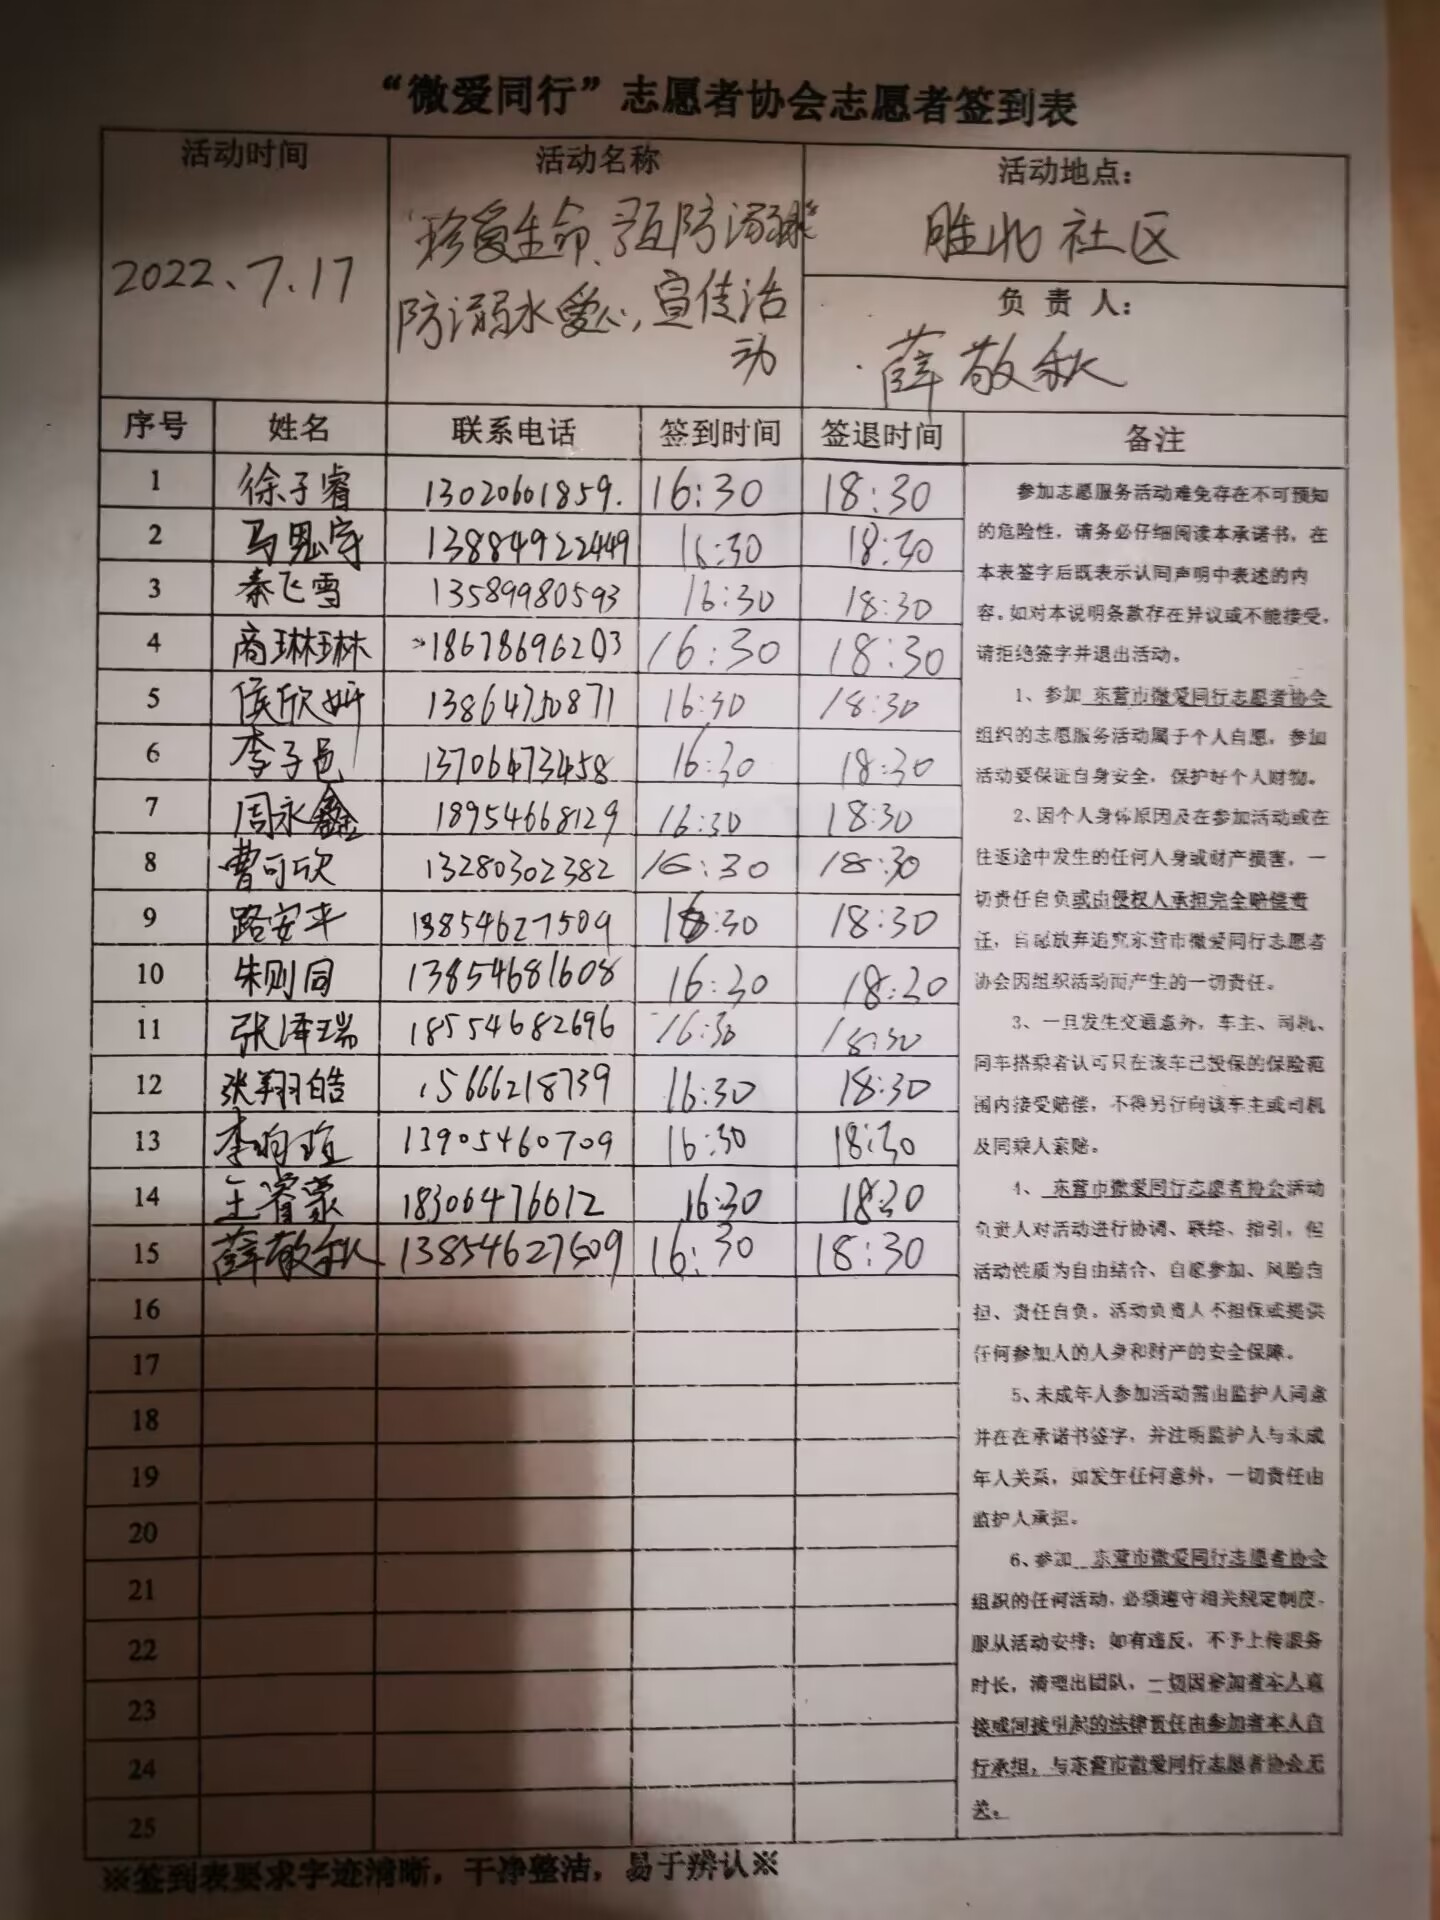 “微爱同行”志愿者协会志愿者签到表
活动时间 活动名称 活动地点：
2022、7.17
“珍爱生命、预防溺水”
防溺水爱心，宣传活
动
胜北社区
负 责 人：
薛敬秋
序号 姓名 联系电话 签到时间 签退时间 备注
1 徐子睿 13020601859. 16:30 18:30
2 马思宇 13884922449 16:30 18:30
3 秦飞雪 13589980593 16:30 18:30
4 商琳琳 18678696203 16:30 18:30
5 侯欣妍 13864750871 16:30 18:30
6 李子邑 13706473458 16:30 18:30
7 周永鑫 18954668129 16:30 18:30
8 曹可欣 13280302382 16:30 18:30
9 路安平 13854627509 16:30 18:30
10 朱则同 13854681608 16:30 18:30
11 张泽瑞 18554682696 16:30 18:30
12 张翔皓 15666218739 16:30 18:30
13 李 13905460709 16:30 18:30
14 王睿蒙 18306476612 16:30 18:30
15 薛敬秋 13854627509 16:30 18:30
16
17
18
19
20
21
22
23
24
25
参加志愿服务活动难免存在不可预知
的危险性，请务必仔细阅读本承诺书，在
本表签字后既表示认同声明中表述的内
容。如对本说明条款存在异议或不能接受，
请拒绝签字并退出活动。
1、参加 东营市微爱同行志愿者协会
组织的志愿服务活动属于个人自愿，参加
活动要保证自身安全，保护好个人财物。
2、因个人身体原因及在参加活动或在
往返途中发生的任何人身或财产损害，一
切责任自负或由侵权人承担完全赔偿责
任，自愿放弃追究东营市微爱同行志愿者
协会因组织活动而产生的一切责任。
3、一旦发生交通意外，车主、司机、
同车搭乘者认可只在该车已投保的保险范
围内接受赔偿，不得另行向该车主或司机
及同乘人索赔。
4、 东营市微爱同行志愿者协会活动
负责人对活动进行协调、联络、指引，但
活动性质为自由结合、自愿参加、风险自
担、责任自负。活动负责人不担保或提供
任何参加人的人身和财产的安全保障。
5、未成年人参加活动需由监护人同意
并在在承诺书签字，并注明监护人与未成
年人关系，如发生任何意外，一切责任由
监护人承担。
6、参加 东营市微爱同行志愿者协会
组织的任何活动，必须遵守相关规定制度，
服从活动安排；如有违反，不予上传服务
时长，清理出团队，一切因参加者本人直
接或间接引起的法律责任由参加者本人自
行承担，与东营市微爱同行志愿者协会无
关。
※签到表要求字迹清晰，干净整洁，易于辨认※